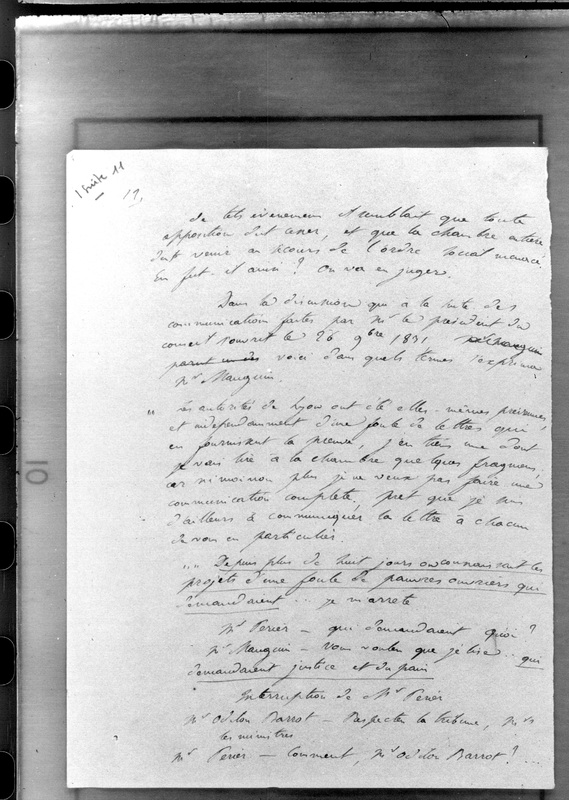 1 suite 11
11,
de tels évènemens il semblait que toute
opposition dut cesser, et que la chambre entière
dut venir au secours de l'ordre social menacé
En fut-il ainsi ? On va en juger.
Dans la discussion qui à la suite des
communications faites par Mr le président du
conseil s'ouvrit le 26 9bre 1831 Mr Mauguin
parut voici dans quels termes s'exprima
Mr Mauguin.
" Les autorités de Lyon ont été elles-mêmes prévenues,
et indépendamment d'une foule de lettres qui
en fournissent la preuve, j'en tiens une dont
je vais lire à la chambre quelques fragmens,
car ni moi non plus je ne veux pas faire une
communication complète, prêt que je suis
d'ailleurs à communiquer la lettre à chacun
de vous en particulier.
"... Depuis plus de huit jours on connaissait les
projets d'une foule de pauvres ouvriers qui
demandaient ... je m'arrête
Mr Perier — qui demandaient quoi ?
Mr Mauguin — vous voulez que je lise .. qui
demandaient justice et du pain
Interruption de Mr Perier
Mr Odilon Barrot — Respectez la tribune, Mrs
les ministres
Mr Perier — Comment, Mr Odilon Barrot ? ...
10